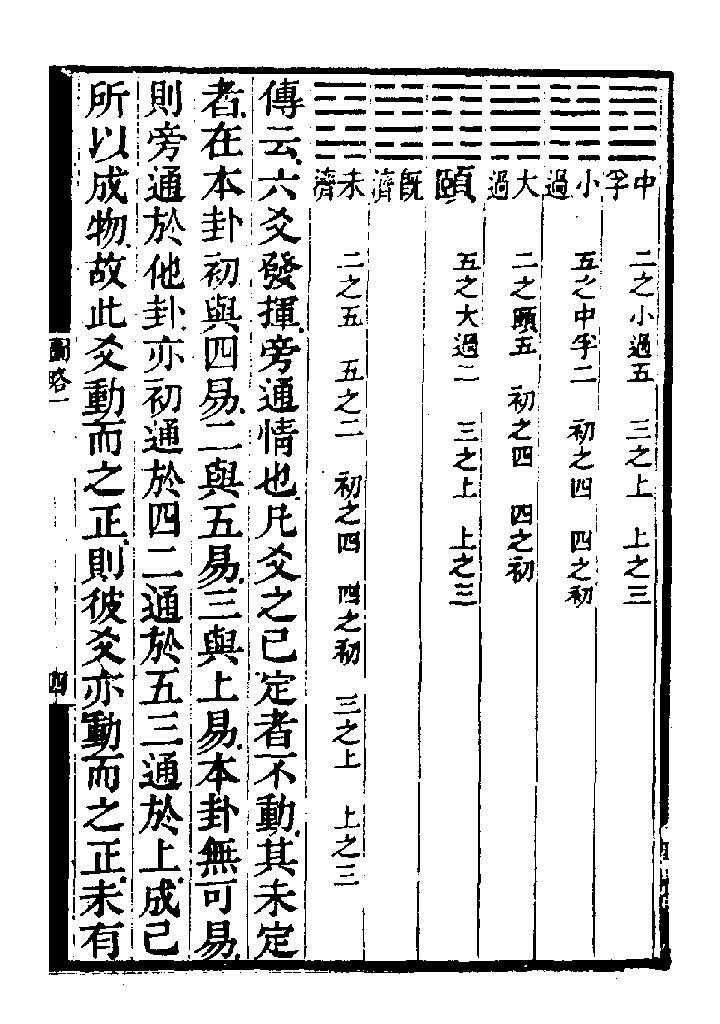 中孚 二之小過五 三之上 上之三
小過 五之中孚二 初之四 四之初
大過 二之頤五 初之四 四之初
頤 五之大過二 三之上 上之三
既濟
未濟 二之五 五之二 初之四 四之初 三之上 上之三
傳云六爻發揮旁通情也凡爻之已定者不動其未定
者在本卦初與四易二與五易三與上易本卦無可易
則旁通於他卦亦初通於四二通於五三通於上成己
所以成物故此爻動而之正則彼爻亦動而之正未有
圖略一
四